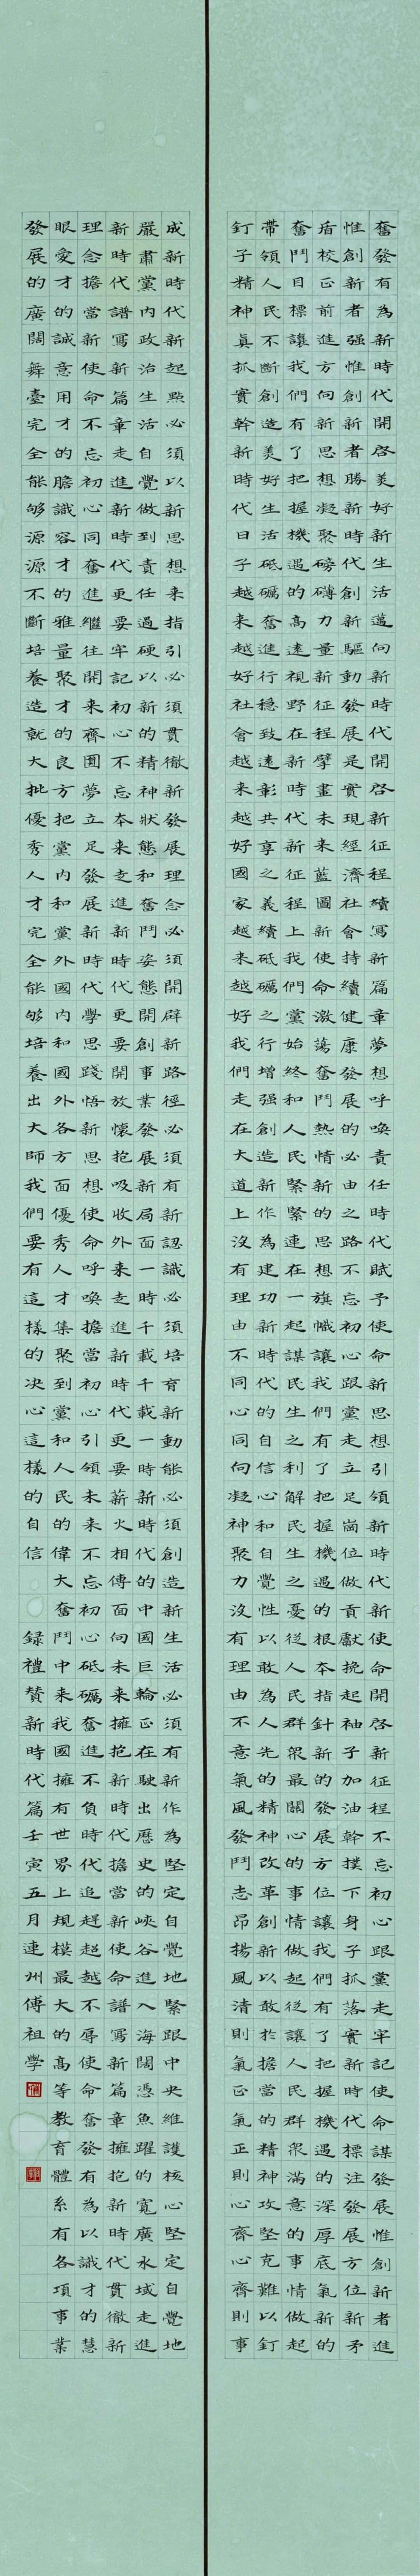 奮發有為新時代開啓美好新生活邁向新時代開啓新征程續寫新篇章夢想呼喚責任時代賦予使命新思想引領新時代新使命開啓新征程不忘初心跟黨走牢記使命謀發展惟創新者進
惟創新者强惟創新者勝新時代創新驅動發展是實現經濟社會持續健康發展的必由之路不忘初心跟黨走立足崗位做貢獻挽起袖子加油幹撲下身子抓落實新時代標注發展方位新矛
盾校正前進方向新思想凝聚磅礴力量新征程擘畫未來藍圖新使命激蕩奮鬥熱情新的思想旗幟讓我們有了把握機遇的根本指針新的發展方位讓我們有了把握機遇的深厚底氣新的
奮鬥目標讓我們有了把握機遇的高遠視野在新時代新征程上我們黨始終和人民緊緊連在一起謀民生之利解民生之憂從人民群衆最關心的事情做起從讓人民群衆滿意的事情做起
帶領人民不斷創造美好生活砥礪奮進行穩致遠彰共享之義續砥礪之行增强創造新作為建功新時代的自信心和自覺性以敢為人先的精神改革創新以敢於擔當的精神攻堅克難以釘
釘子精神真抓實幹新時代日子越來越好社會越來越好國家越來越好我們走在大道上沒有理由不同心同向凝神聚力沒有理由不意氣風發鬥志昂揚風清則氣正氣正則心齊心齊則事
成新時代新起點必須以新思想來指引必須貫徹新發展理念必須開辟新路徑必須有新認識必須培育新動能必須創造新生活必須有新作為堅定自覺地緊跟中央維護核心堅定自覺地
嚴肅黨内政治生活自覺做到責任過硬以新的精神狀態和奮鬥姿態開創事業發展新局面一時千載千載一時新時代的中國巨輪正在駛出歷史的峽谷進入海闊憑魚躍的寬廣水域走進
新時代譜寫新篇章走進新時代更要牢記初心不忘本來走進新時代更要開放懷抱吸收外來走進新時代更要薪火相傳面向未來擁抱新時代擔當新使命譜寫新篇章擁抱新時代貫徹新
理念擔當新使命不忘初心同奮進繼往開來齊圓夢立足發展新時代學思踐悟新思想使命呼喚擔當初心引領未來不忘初心砥礪奮進不負時代追趕超越不辱使命奮發有為以識才的慧
眼愛才的誠意用才的膽識容才的雅量聚才的良方把黨内和黨外國内和國外各方面優秀人才集聚到黨和人民的偉大奮鬥中來我國擁有世界上規模最大的高等教育體系有各項事業
發展的廣闊舞臺完全能够源源不斷培養造就大批優秀人才完全能够培養出大師我們要有這樣的决心這樣的自信 録禮贊新時代篇壬寅五月連州傅祖學